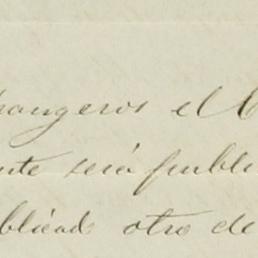 rangeros el E
nte será publi
blicado otro de